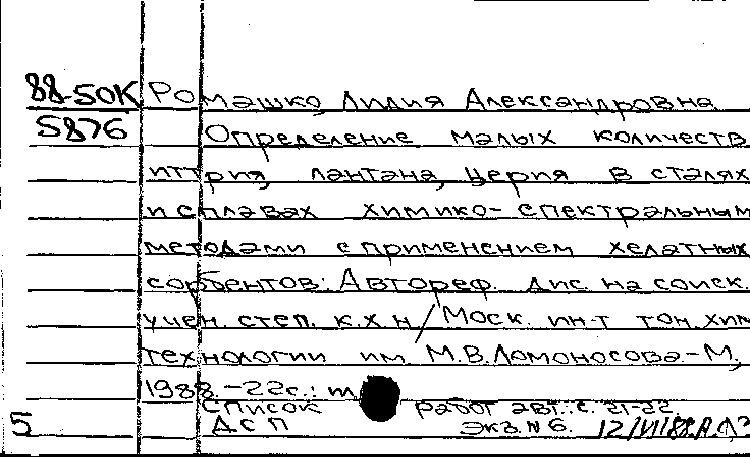 88-50К Ромашко, Лидия Александровна
5876 Определение малых количеств
иттрия, лантана, церия в сталях
и сплавах химико-спектральным
методами с применением хелатных
сорбентов: Автореф. дис. на соиск.
учен. степ. к.х.н / Моск. ин-т тон. хим
технологии им. М.В.Ломоносова.-М,
1988.-22с.:
Список работ авт.: с. 21-22.
5 ДСП Экз. N 6. 12/VI 88.